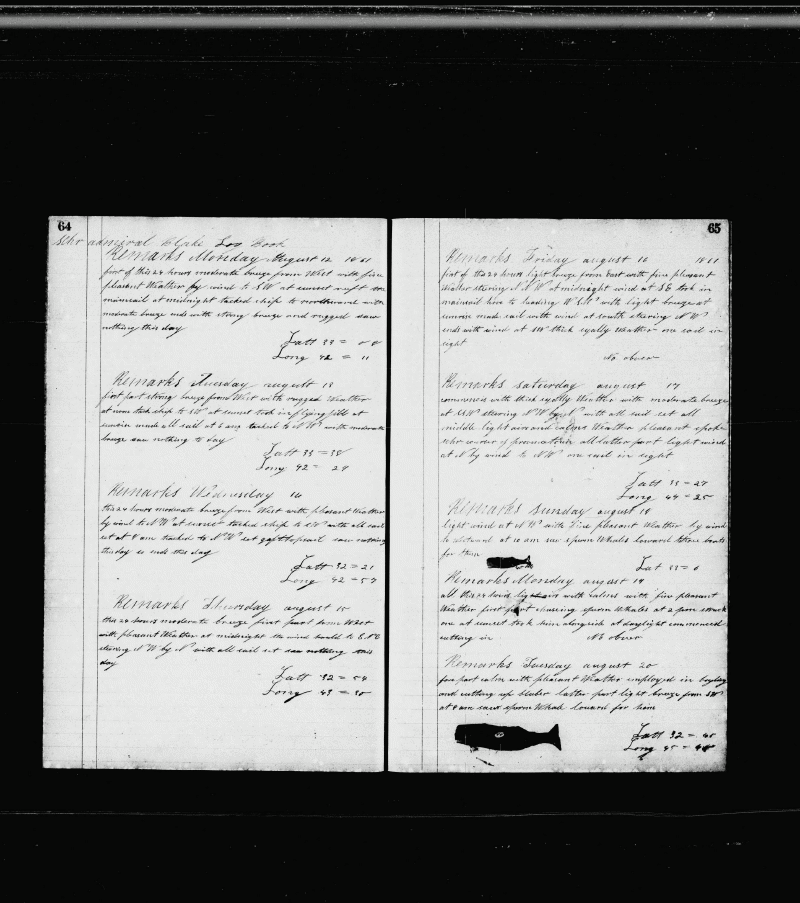 64
Schr admiral Blake Log Book
Remarks Monday August 12
first of this 24 hours moderate breeze from West with fine
pleasant Weather by wind to SW at sunset reeft the
mainsail at midnight tacked ship to northward with
moderate breeze ends with strong breeze and rugged saw
nothing this day
Latt 33 =
Long 42 = 11
Remarks Tuesday august 13
first part strong breeze from West with rugged Weather
at noon tack ship to SW at sunset took in flying jibb at
sunrise made all sail at 6 am tacked to NW with moderate
breeze saw nothing to day
Latt 33 = 38
Long 42 = 29
Remarks Wednesday 14
this 24 hours moderate breeze from West with pleasant Weather
by wind to NW at sunset tacked ship to SW with all sail
set at 8 am tacked to NW set gafftopsail saw nothing
this day so ends this day
Latt 32 = 21
Long 42 = 57
Remarks Thursday august 15
this 24 hours moderate breeze first part from West
with pleasant Weather at midnight the wind hauld to ENE
steering NW by N with all sail set saw nothing this
day
Latt 32 = 54
Long 43 = 30
65
Remarks Friday august 16
first of this 24 hours light breeze from east with fine pleasant
Weather steering NNW at midnight wind at SE took in
mainsail hove to heading with light breeze at
sunrise made sail with wind at south steering NW
ends with wind at SW thick sqally Weather one sail in
sight
No obser
Remarks Saturday august 17
commences with thick sqally Weather with moderate breeze
at SSW steering NW by N with all sail set all
middle light airs and calms Weather pleasant spoke
schr of provincetown all latter part light wind
at N by wind to NW one sail in sight
Latt 33 = 27
Long 44 = 25
Remarks Sunday august 18
light wind at NW with fine pleasant Weather by wind
to at 10 am saw sperm Whales lowerd three boats
for them
Lat 33 = 6
Remarks Monday august 19
all this 24 hours light air with calms with fine pleasant
Weather first part chasing sperm Whales at 2 pm struck
one at sunset took him alongside at daylight commenced
cutting in
No obser
Remarks Tuesday august 20
fore part calm with pleasant Weather employed in
and cutting up bluber latter part light breeze from SW
at 8 am saw sperm Whale lowerd for him
Latt 32 = 45
Long 45 =